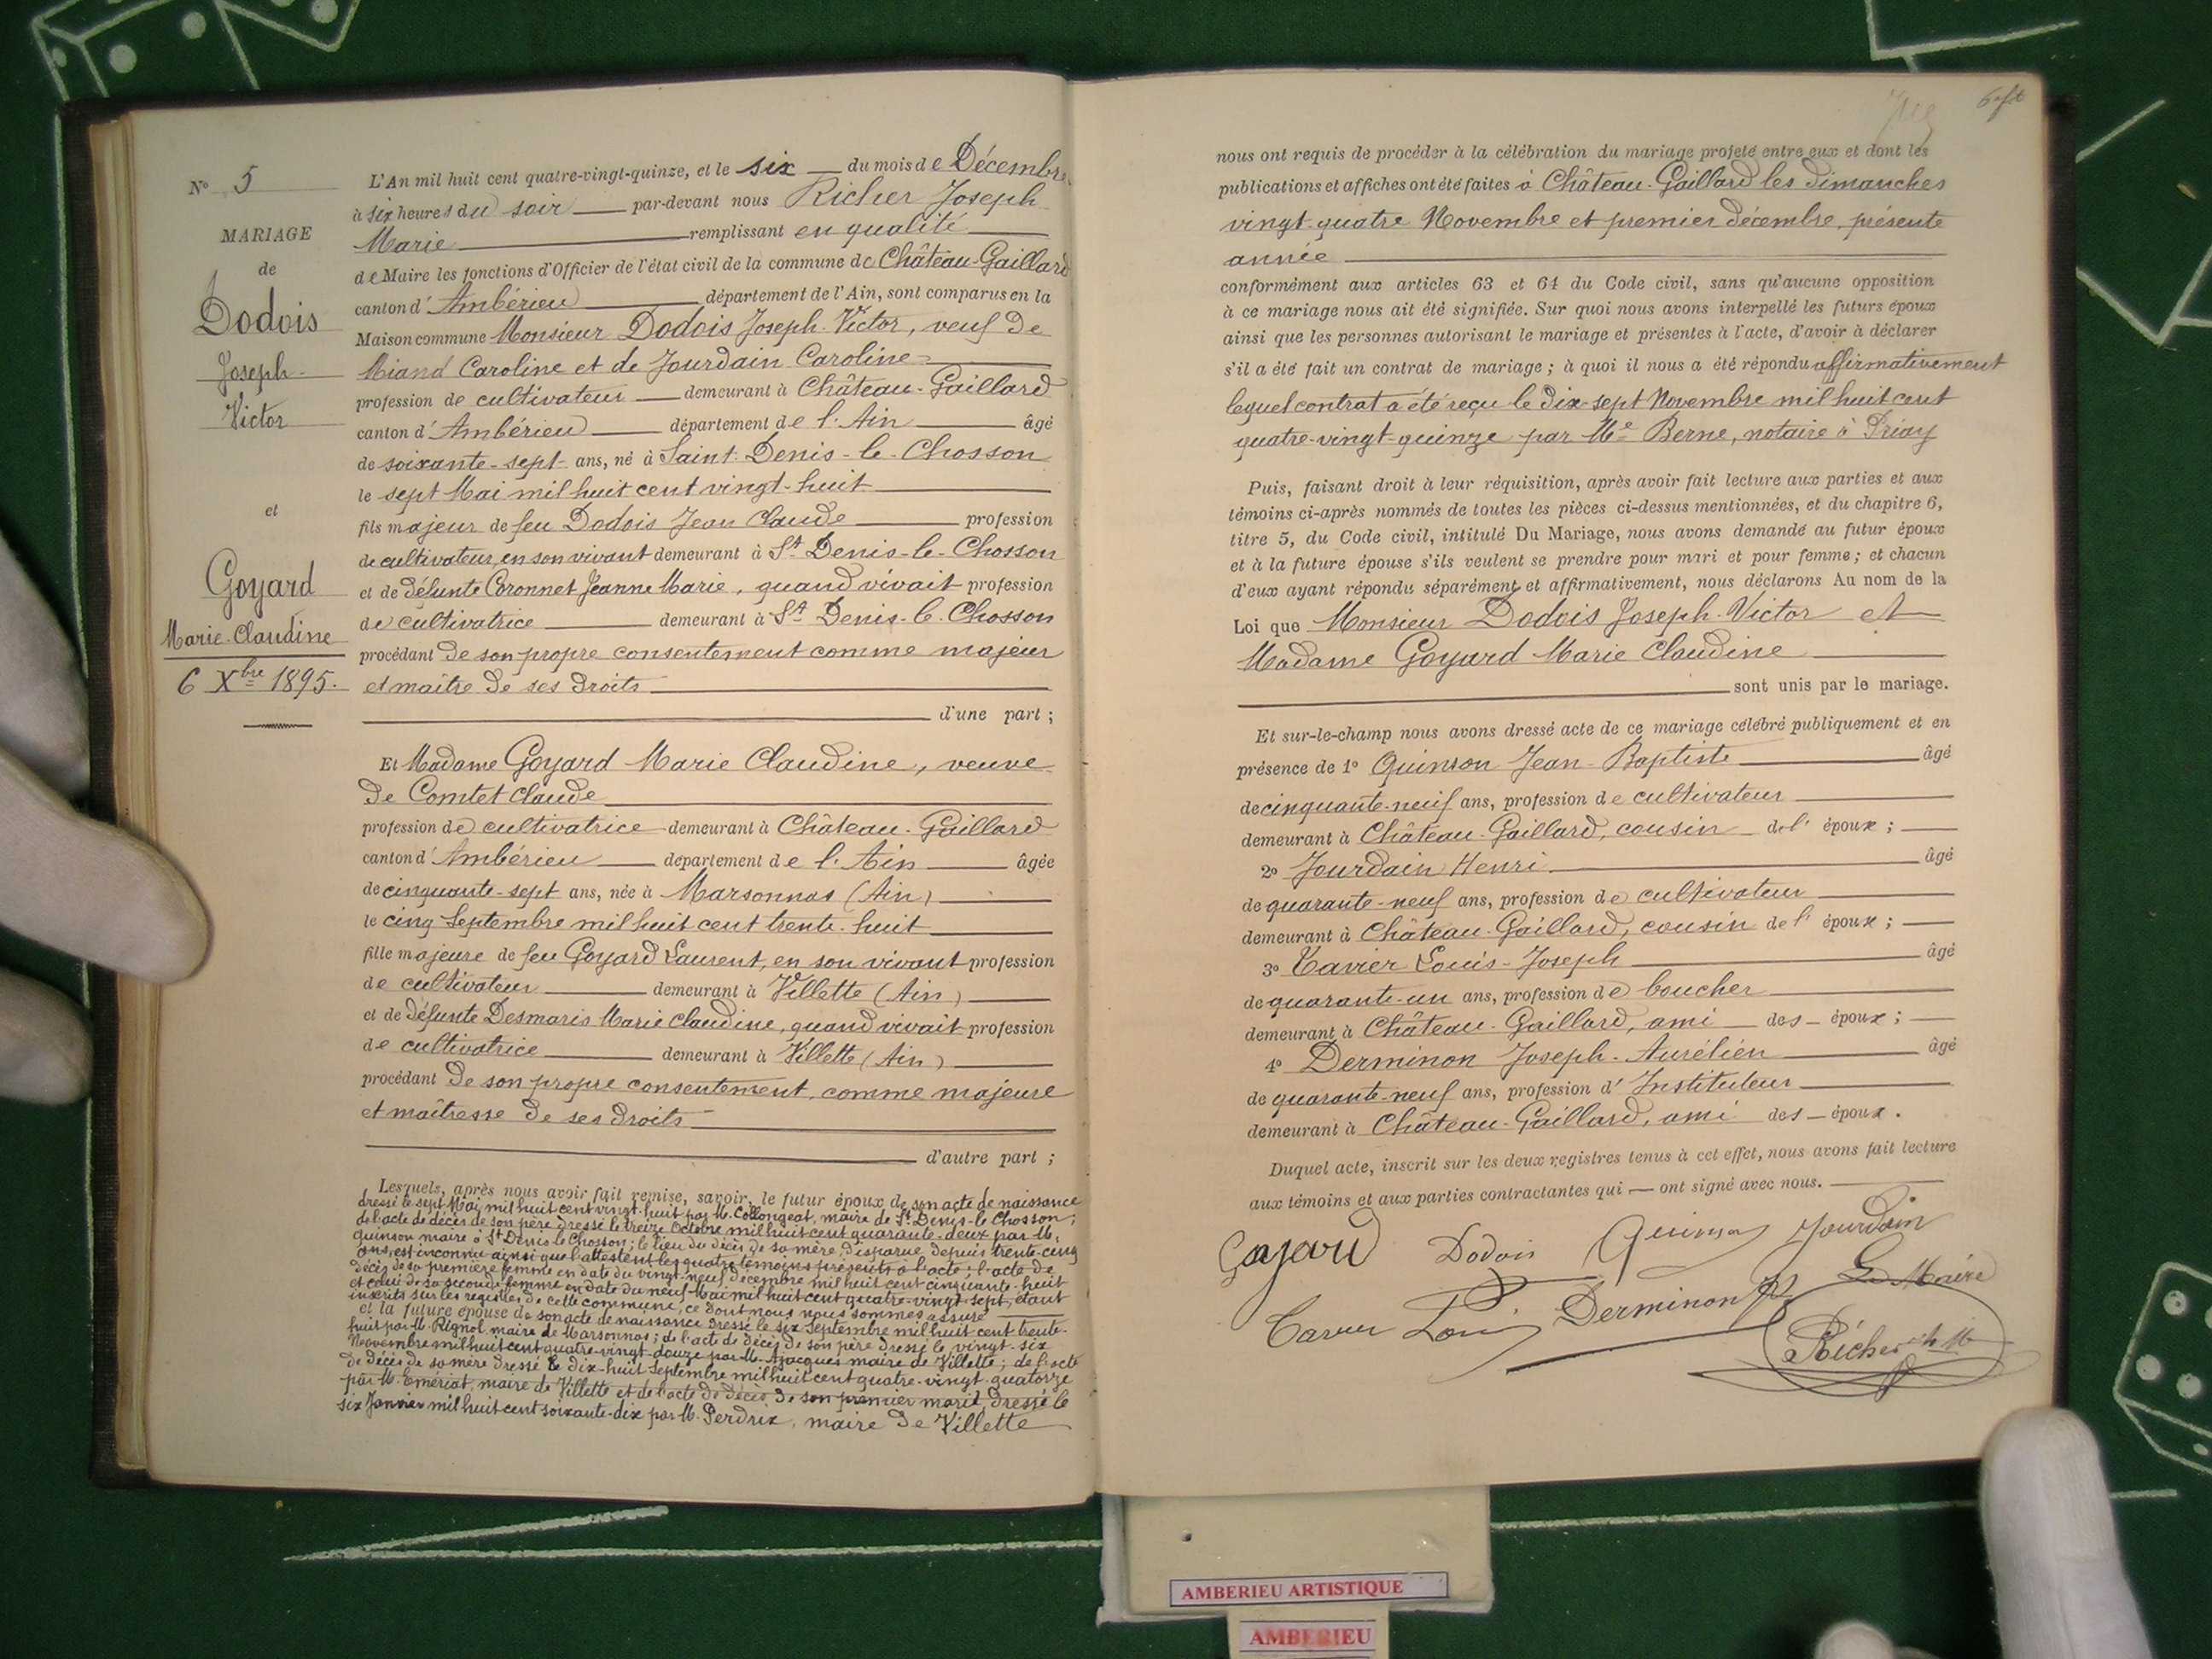 N° 5
MARIAGE
de
Dodois
Joseph-
Victor
et
Goyard
Marie-Claudine
6 Xbre 1895.
L'An mil huit cent quatre-vingt-quinze, et le six du mois de Décembre
à six heures du soir par-devant nous Richer Joseph
Marie remplissant en qualité
de Maire les fonctions d'Officier de l'état civil de la commune de Château-Gaillard
canton d'Ambérieu département de l'Ain, sont comparus en la
Maison commune Monsieur Dodois Joseph-Victor, veuf de
Miand Caroline et de Jourdain Caroline
profession de cultivateur demeurant à Château-Gaillard
canton d'Ambérieu département de l'Ain âgé
de soixante-sept ans, né à Saint-Denis-le-Chosson
le sept Mai mil huit cent vingt-huit
fils majeur de feu Dodois Jean Claude profession
de cultivateur, en son vivant demeurant à St Denis-le-Chosson
et de défunte Coronnet Jeanne Marie, quand vivait profession
de cultivatrice demeurant à St Denis-le-Chosson
procédant de son propre consentement comme majeur
et maître de ses droits
d'une part ;
Et Madame Goyard Marie Claudine, veuve
de Comtet Claude
profession de cultivatrice demeurant à Château-Gaillard
canton d'Ambérieu département de l'Ain âgée
de cinquante-sept ans, née à Marsonnas (Ain)
le cinq Septembre mil huit cent trente-huit
fille majeure de feu Goyard Laurent, en son vivant profession
de cultivateur demeurant à Villette (Ain)
et de défunte Desmaris Marie Claudine, quand vivait profession
de cultivatrice demeurant à Villette (Ain)
procédant de son propre consentement, comme majeure
et maîtresse de ses droits
d'autre part ;
Lesquels, après nous avoir fait remise, savoir, le futur époux de son acte de naissance
dressé le sept Mai mil huit cent vingt-huit par M. Collongeat, maire de St Denis-le-Chosson;
de l'acte de décès de son père dressé le treize Octobre mil huit cent quarante-deux par M.
Quinson maire à St Denis-le-Chosson; le lieu du décès de sa mère, disparue depuis trente-cinq
ans, est inconnu ainsi que l'attestent les quatre témoins présents à l'acte; l'acte de
décès de sa première femme en date du vingt-neuf décembre mil huit cent cinquante-huit
et celui de sa seconde femme en date du neuf Mai mil huit cent quatre-vingt-sept, étant
inscrits sur les registres de cette commune, ce dont nous nous sommes assuré
et la future épouse de son acte de naissance dressé le six Septembre mil huit cent trente-
huit par M. Rignol, maire de Marsonnas; de l'acte de décès de son père dressé le vingt-six
Novembre mil huit cent quatre-vingt-douze par M. Ajacques maire de Villette; de l'acte
de décès de sa mère dressé le dix-huit Septembre mil huit cent quatre-vingt-quatorze
par M. Emériat, maire de Villette et de l'acte de décès de son premier marié, dressé le
six Janvier mil huit cent soixante-dix par M. Perdrix, maire de Villette
nous ont requis de procéder à la célébration du mariage projeté entre eux et dont les
publications et affiches ont été faites à Château-Gaillard les dimanches
vingt-quatre Novembre et premier décembre, présente
année
conformément aux articles 63 et 64 du Code civil, sans qu'aucune opposition
à ce mariage nous ait été signifiée. Sur quoi nous avons interpellé les futurs époux
ainsi que les personnes autorisant le mariage et présentes à l'acte, d'avoir à déclarer
s'il a été fait un contrat de mariage ; à quoi il nous a été répondu affirmativement
lequel contrat a été reçu le dix-sept Novembre mil huit cent
quatre-vingt-quinze par Me Berne, notaire à Priay
Puis, faisant droit à leur réquisition, après avoir fait lecture aux parties et aux
témoins ci-après nommés de toutes les pièces ci-dessus mentionnées, et du chapitre 6,
titre 5, du Code civil, intitulé Du Mariage, nous avons demandé au futur époux
et à la future épouse s'ils veulent se prendre pour mari et pour femme ; et chacun
d'eux ayant répondu séparément et affirmativement, nous déclarons Au nom de la
Loi que Monsieur Dodois Joseph-Victor et
Madame Goyard Marie Claudine
sont unis par le mariage.
Et sur-le-champ nous avons dressé acte de ce mariage célébré publiquement et en
présence de 1° Quinson Jean-Baptiste âgé
de cinquante-neuf ans, profession de cultivateur
demeurant à Château-Gaillard, cousin de l'époux ;
2° Jourdain Henri âgé
de quarante-neuf ans, profession de cultivateur
demeurant à Château-Gaillard, cousin de l'époux ;
3° Tavier Louis-Joseph âgé
de quarante-un ans, profession de boucher
demeurant à Château-Gaillard, ami des époux ;
4° Derminon Joseph-Aurélien âgé
de quarante-neuf ans, profession d'Instituteur
demeurant à Château-Gaillard, ami des époux.
Duquel acte, inscrit sur les deux registres tenus à cet effet, nous avons fait lecture
aux témoins et aux parties contractantes qui ont signé avec nous.
Goyard Dodois Quinson Jourdain
Derminon Le Maire
Richer
AMBERIEU ARTISTIQUE
AMBERIEU